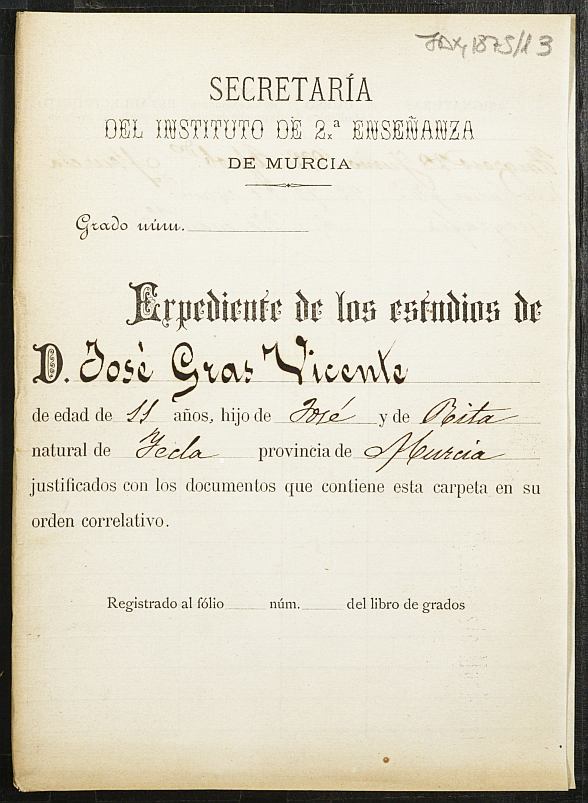 1875/13
SECRETARÍA
DEL INSTITUTO DE 2.ª ENSEÑANZA
DE MURCIA
Grado núm.
Expediente de los estudios de
D. José Gras Vicente
de edad de 11 años, hijo de José y de Rita
natural de Yecla provincia de Murcia
justificados con los documentos que contiene esta carpeta en su
orden correlativo.
Registrado al fólio núm. del libro de grados